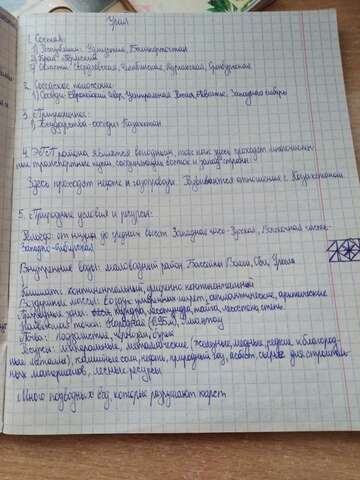 Урал
1. Состав:
1) Республики: Удмуртия, Башкортостан
2) Край: Пермский
3) Области: Свердловская, Челябинская, Курганская, Оренбургская
2. Соседское положение
1) Соседи: Европейский Север, Центральная Россия, Поволжье, Западная Сибирь
3. Приграничное:
1) Государства-соседи: Казахстан
4. ЭГП района является выгодным, так как здесь проходят
транспортные пути, соединяющие восток и запад страны.
Здесь проходят нефте и газопроводы. Развиваются отношения с Казахстаном
5. Природные условия и ресурсы:
Рельеф: от низких до средних высот. Западная часть - Русская, Восточная часть -
Западно-Сибирская
Внутренние воды: маловодный район. Бассейны Волги, Оби, Урала
Климат: континентальный, умеренно континентальный
Воздушные массы: воздух умеренных широт, атлантические, арктические
Природные зоны: тундра, лесотундра, тайга, лесостепь, степь.
Наивысшая точка: Народная (1895м),
Почвы: подзолистые, чернозём, бурые
Ресурсы: минеральные, металлические (железные, медные, редкие и благород-
ные металлы), каменные соли, нефть, природный газ, асбест, сырье для строитель-
ных материалов, лесные ресурсы
Много подводных вод, которые разрушают карст